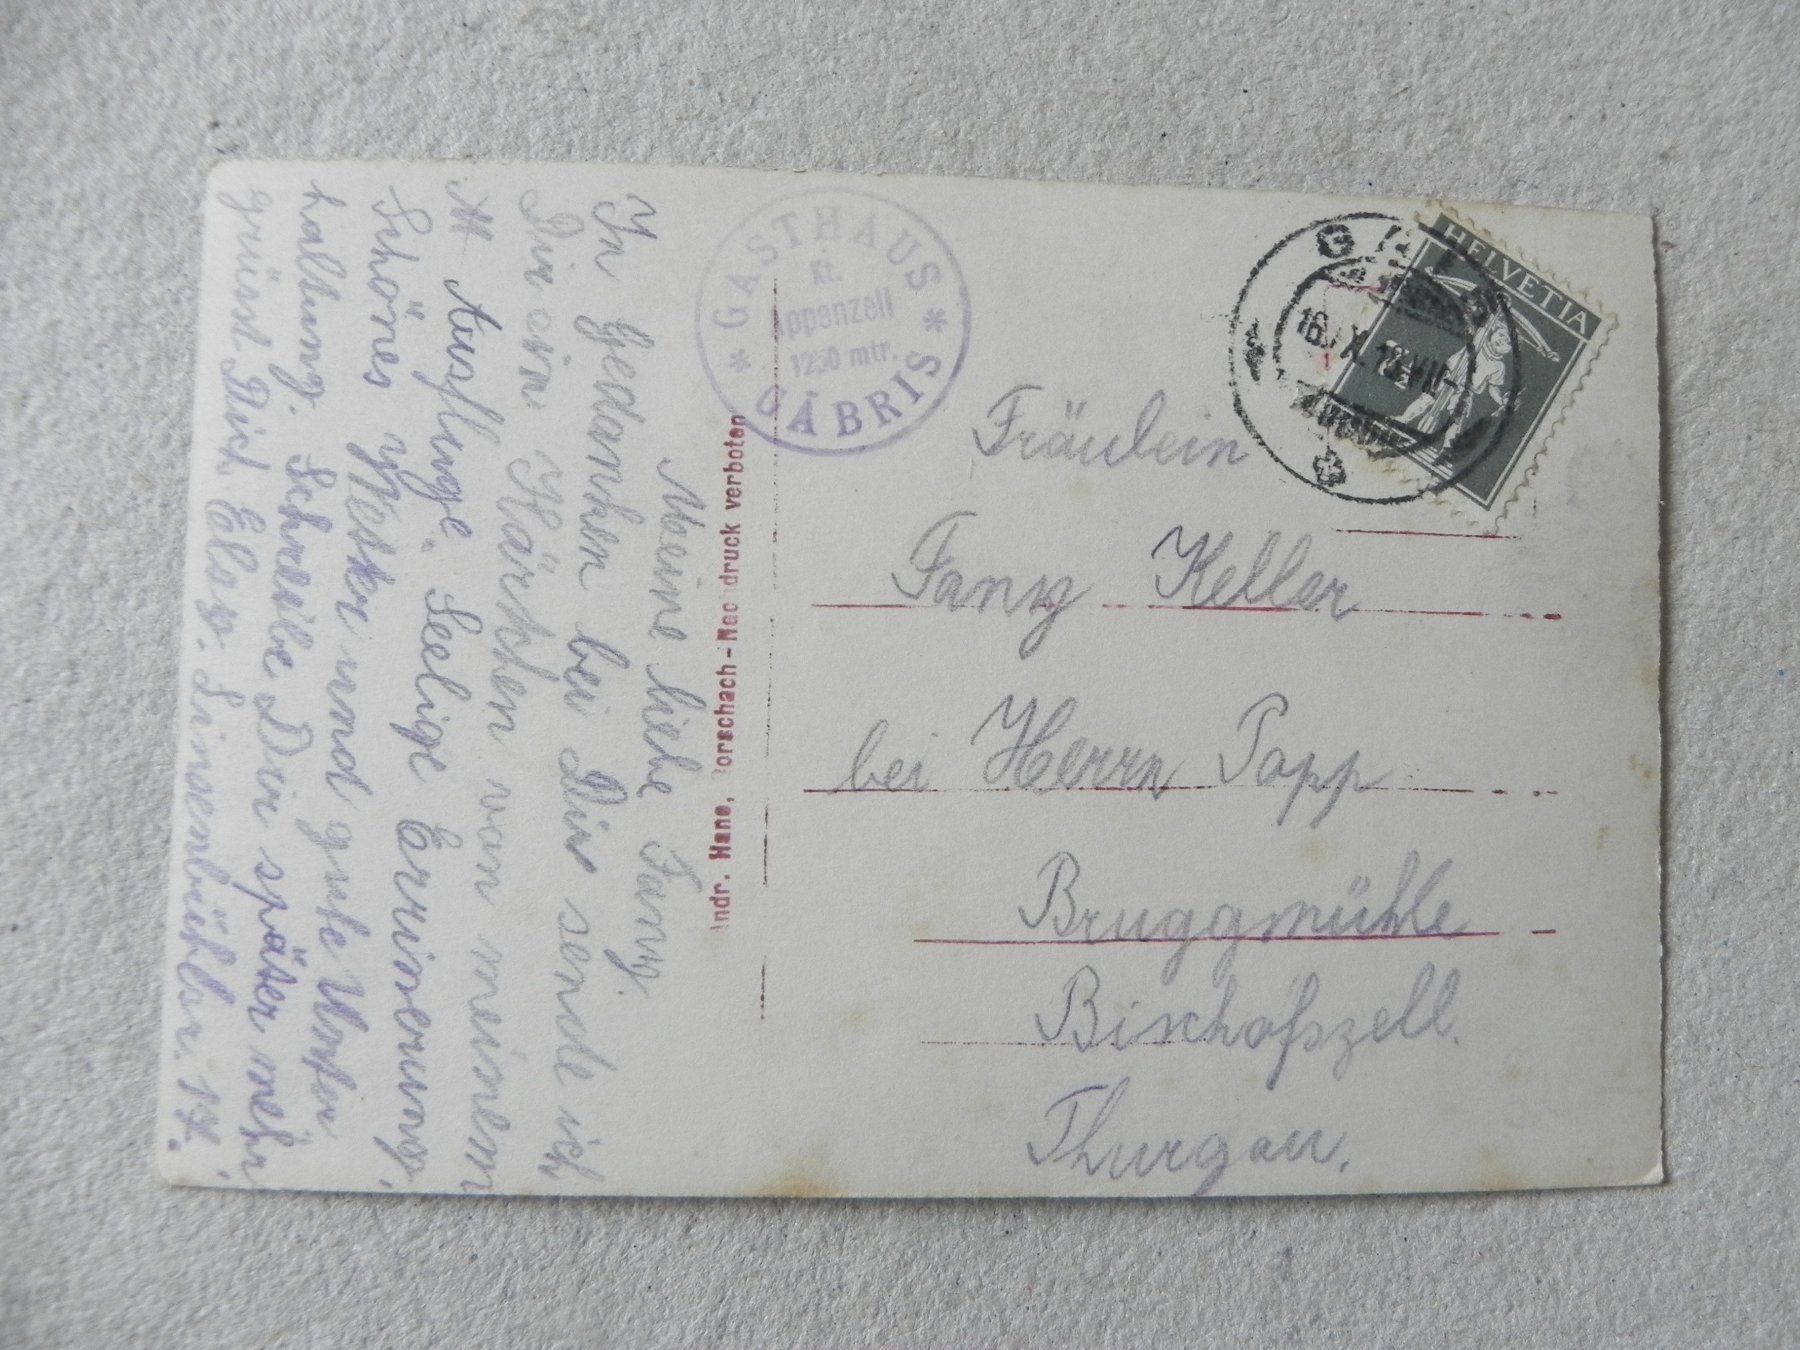 Meine liebe Fany.
In Gedanken bei Dir sende ich
Dir ein Kärtchen von meinem
Ausfluge. Seelige Erinnerung,
Schönes Wetter und gute Unter
haltung. Schreibe Dir später mehr
grüsst Dich Elsy. Linsenbühlstr. 17.
GASTHAUS
Kt.
Appenzell
1250 mtr.
GÄBRIS
Andr. Hane, Rorschach-Nachdruck verboten
HELVETIA
Fräulein
Fany Keller
bei Herrn Papp
Bruggmühle
Bischofszell.
Thurgau.